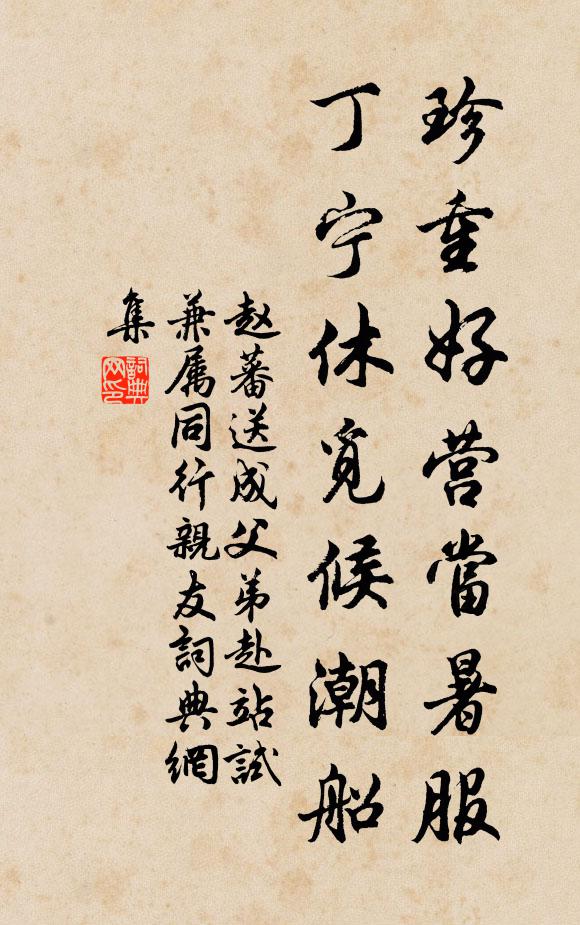 珍重好营當暑服
丁宁休覓候潮船
赵蕃送成父弟赴站試
兼属同行親友詞典網
集
詞典
网印